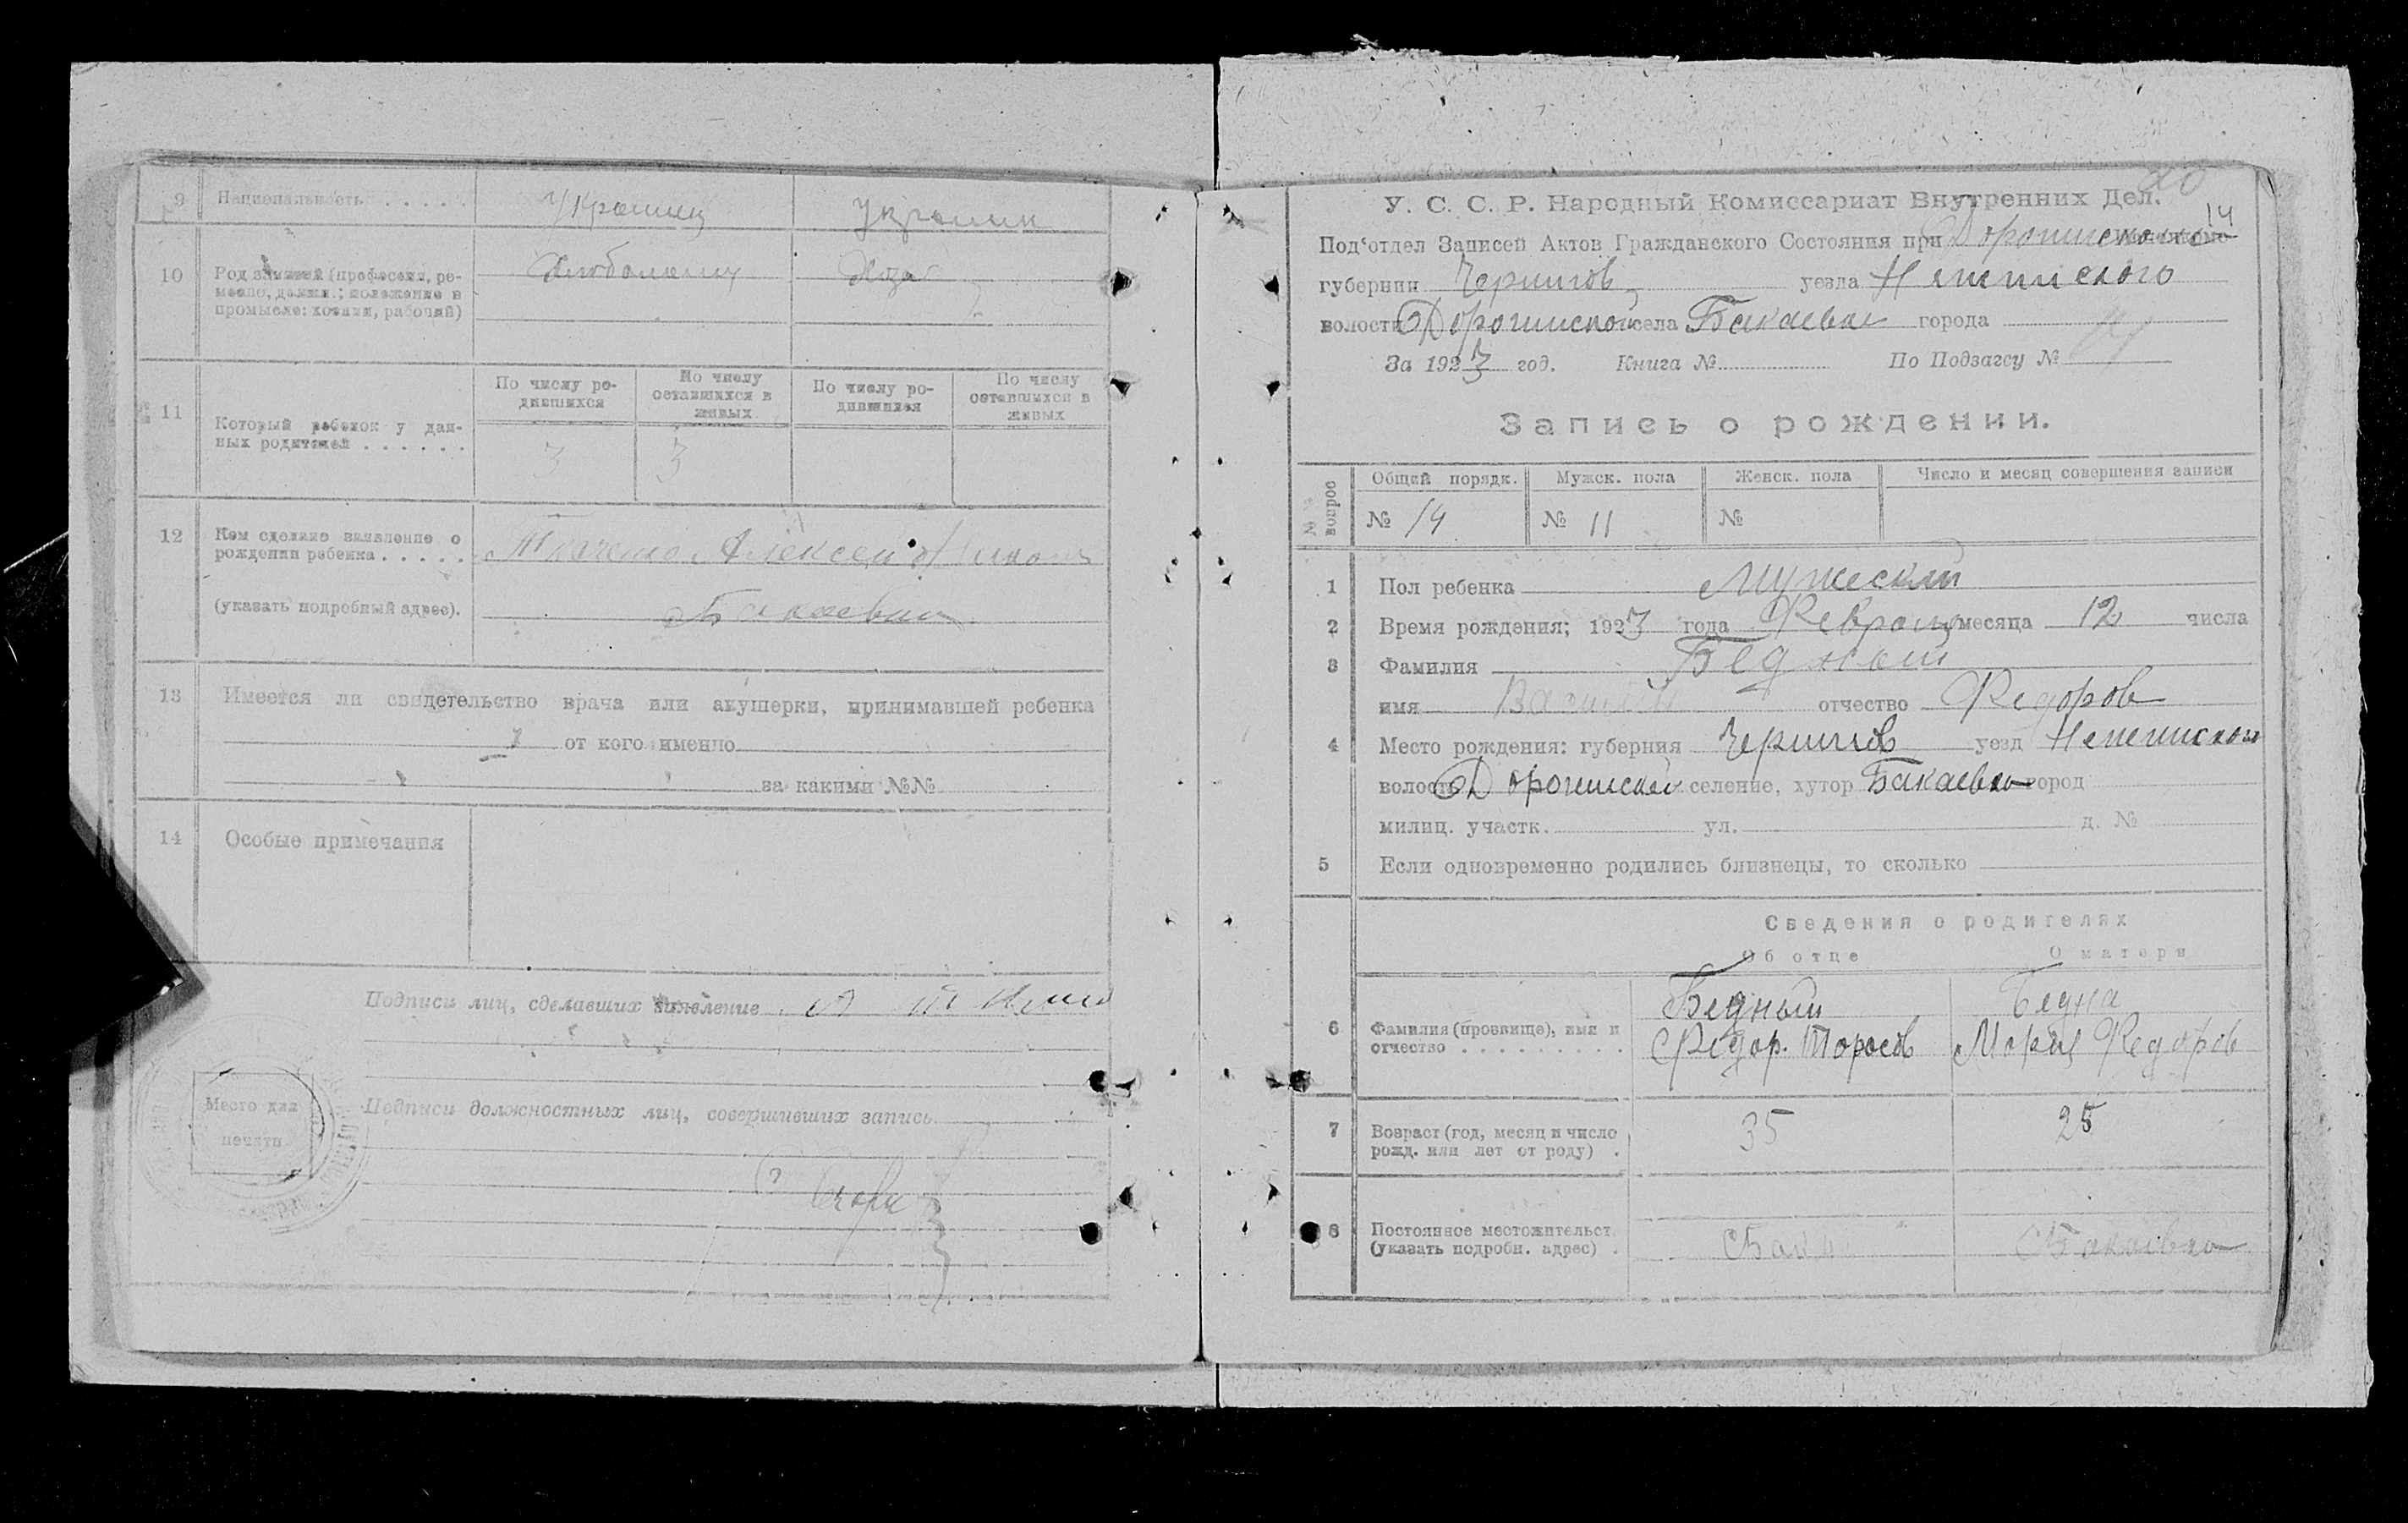 9 Национальность . . . . . Украинец Украинк
10 Род занятий (профессия, ре-
месло, должн.; положение в
промысле: хозяин, рабочий)
11 Который ребенок у дан-
ных родителей . . . . . .
По числу ро-
дившихся
По числу
оставшихся в
живых
По числу ро-
дившихся
По числу
оставшихся в
живых
3 3
12 Кем сделано заявление о
рождении ребенка . . . . . Алексей
(указать подробный адрес). Бакаевка
13 Имеется ли свидетельство врача или акушерки, принимавшей ребенка
от кого именно
за какими №№
14 Особые примечания
Подписи лиц, сделавших заявление
Место для
печати
Подписи должностных лиц, совершивших запись
20
У. С. С. Р. Народный Комиссариат Внутренних Дел.
14
Под'отдел Записей Актов Гражданского Состояния при Дорогинском
губернии Чернигов уезда Нежинского
волости Дорогинской села Бакаевка города
За 1923 год. Книга № По Подзагсу №
Запись о рождении.
№№ вопрос
Общий порядк. Мужск. пола Женск. пола Число и месяц совершения записи
№ 14 № 11 №
1 Пол ребенка Мужеский
2 Время рождения; 1923 года Февраля месяца 12 числа
3 Фамилия Бедный
имя Василий отчество Федоров
4 Место рождения: губерния Чернигов уезд Нежинской
волость Дорогинской селение, хутор Бакаевка город
милиц. участк. ул. д. №
5 Если одновременно родились близнецы, то сколько
Сведения о родителях
Об отце О матери
6 Фамилия (прозвище), имя и
отчество . . . . . . . . .
Бедный
Федор. Торасов
Бедна
Мория Федоров
7 Возраст (год, месяц и число
рожд. или лет от роду) .
35 25
8 Постоянное местожительст.
(указать подробн. адрес) .
Бакаевка